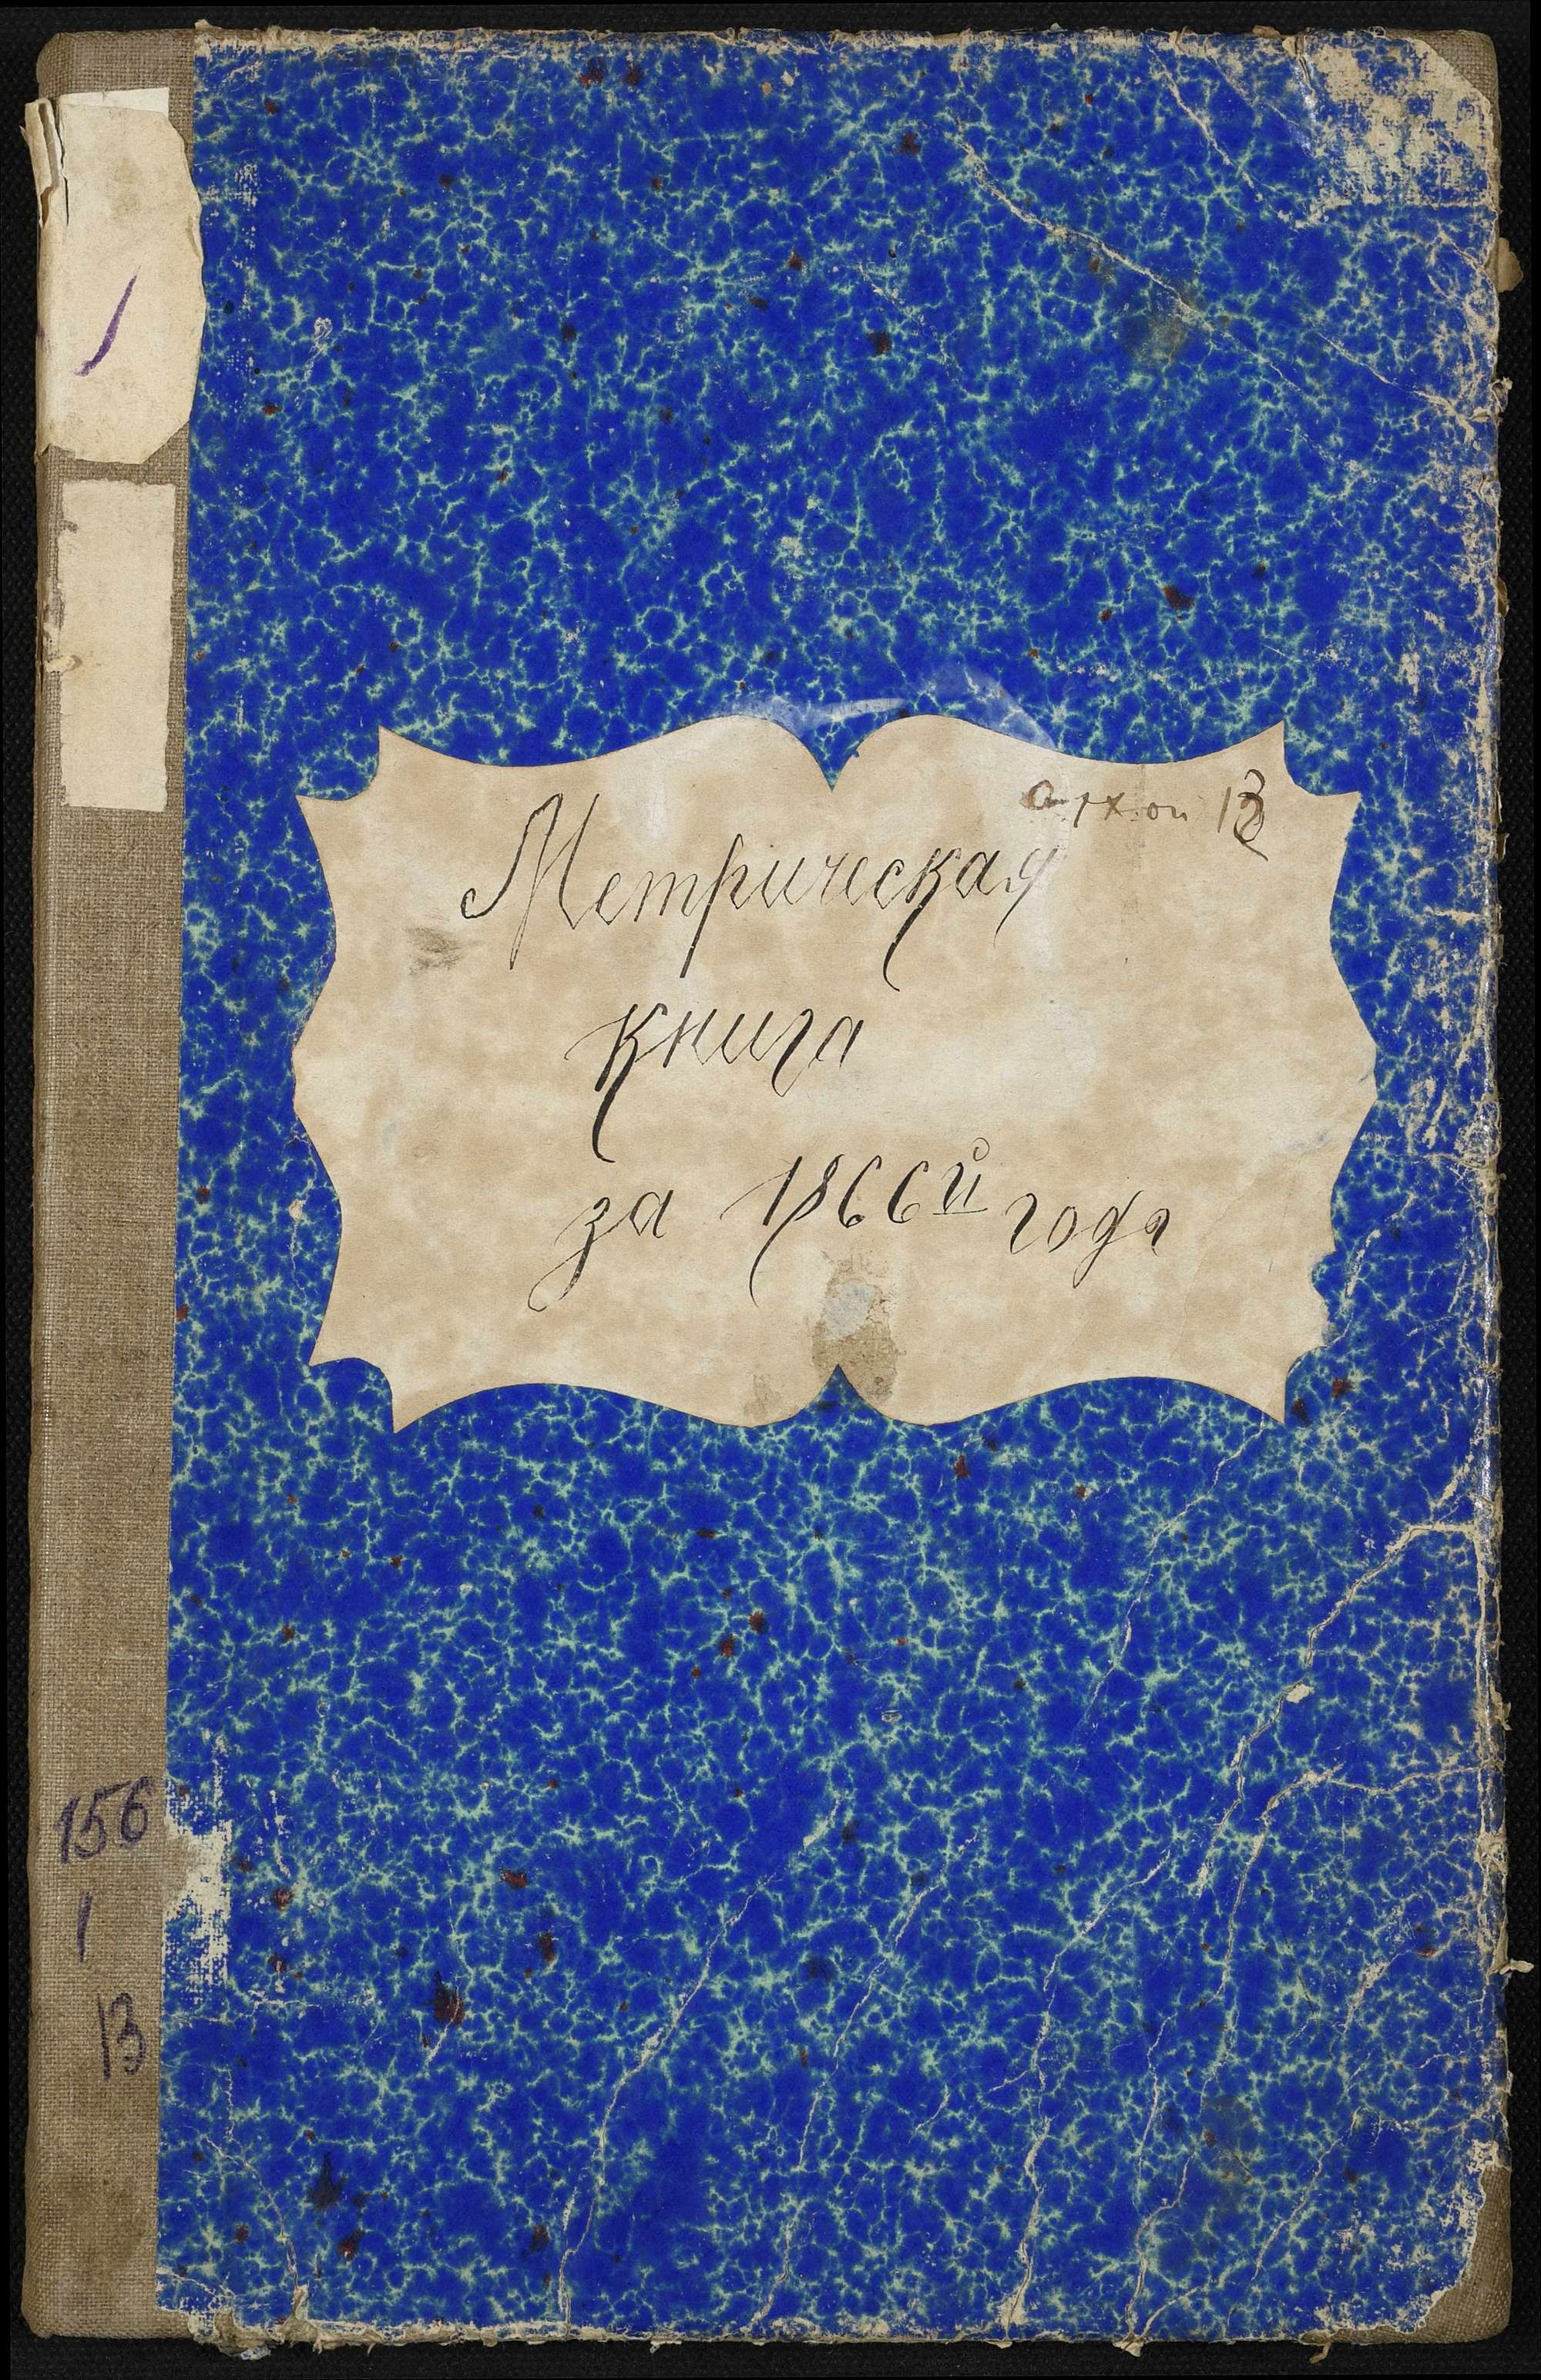 13
Метрическая
книга
за 1866й года
156
1
13